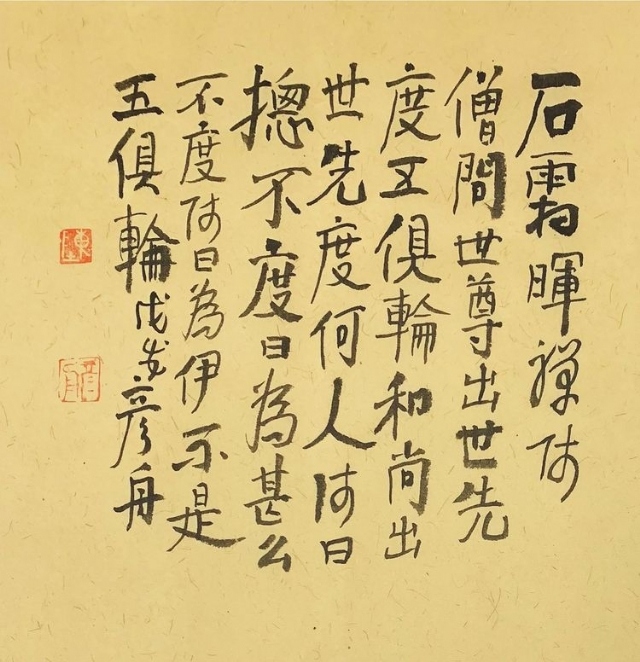 石霜暉禪師
僧問世尊出世先
度五俱輪和尚出
世先度何人師曰
摠不度曰為甚么
不度師曰為伊不是
五俱輪戊戌彥舟